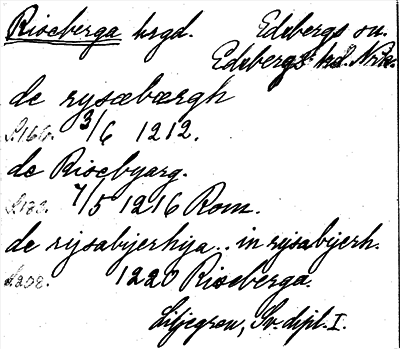 Riseberga hrgd. Edsbergs sn.
Edsbergs hd. Nrke.
de rysæbærgh
S. 166. 3/6 1212.
de Risebyarg.
S. 182. 7/5 1216 Rom.
de rijsabijerhija .. in rysabijerh.
S. 208. 1220 Riseberga.
Liljegren, Sv. dipl. I.